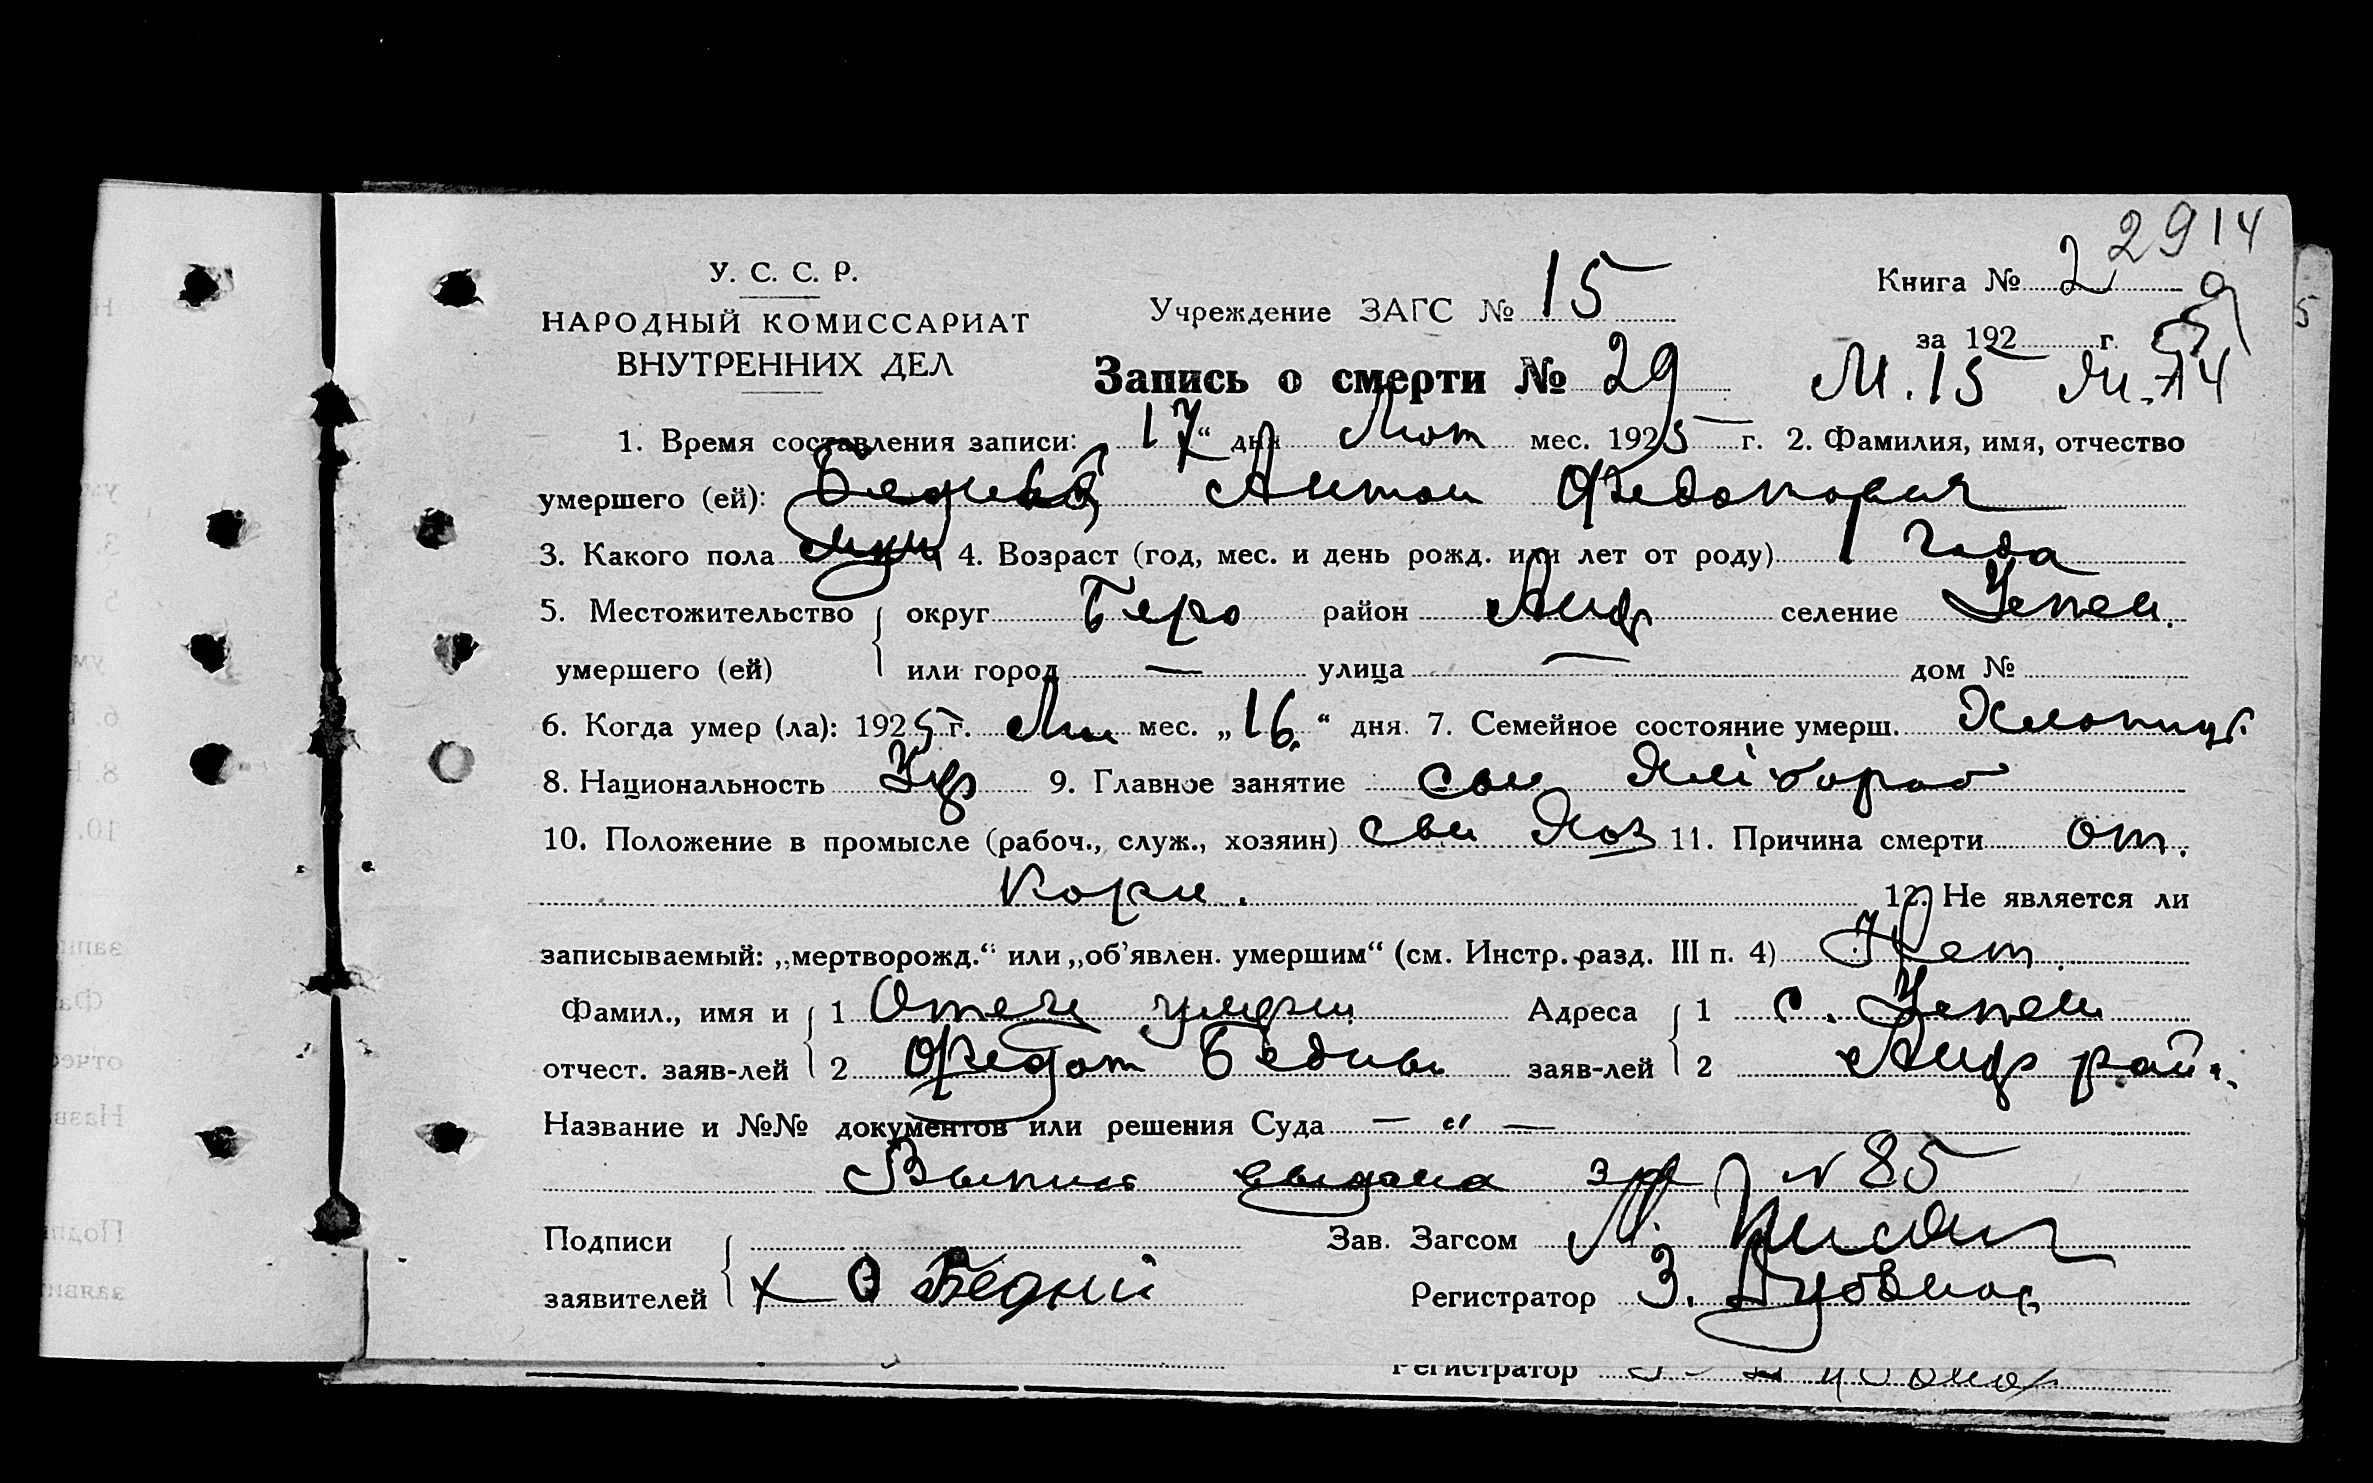 29 14
У. С. С. Р.
НАРОДНЫЙ КОМИССАРИАТ
ВНУТРЕННИХ ДЕЛ
Учреждение ЗАГС № 15
Книга № 2
за 192 г.
Запись о смерти № 29 М. 15
1. Время составления записи: 17“ дня Лют мес. 1925 г. 2. Фамилия, имя, отчество
умершего (ей): Антон Федотович
3. Какого пола муж 4. Возраст (год, мес. и день рожд. или лет от роду) 1 Года
5. Местожительство округ район селение
умершего (ей) или город — улица — дом №
6. Когда умер (ла): 1925 г. мес. „16“ дня. 7. Семейное состояние умерш.
8. Национальность Укр 9. Главное занятие сын Хлібороб
10. Положение в промысле (рабоч., служ., хозяин) 11. Причина смерти от.
Кори.
12. Не является ли
записываемый: „мертворожд.“ или „об'явлен. умершим“ (см. Инстр. разд. III п. 4) Нет.
Фамил., имя и 1 Отец Адреса 1 с.
отчест. заяв-лей 2 Федот Бедный заяв-лей 2 рай.
Название и №№ документов или решения Суда — „ —
выдана № 85
Подписи Зав. Загсом
заявителей Х Бедний Регистратор З.
Регистратор